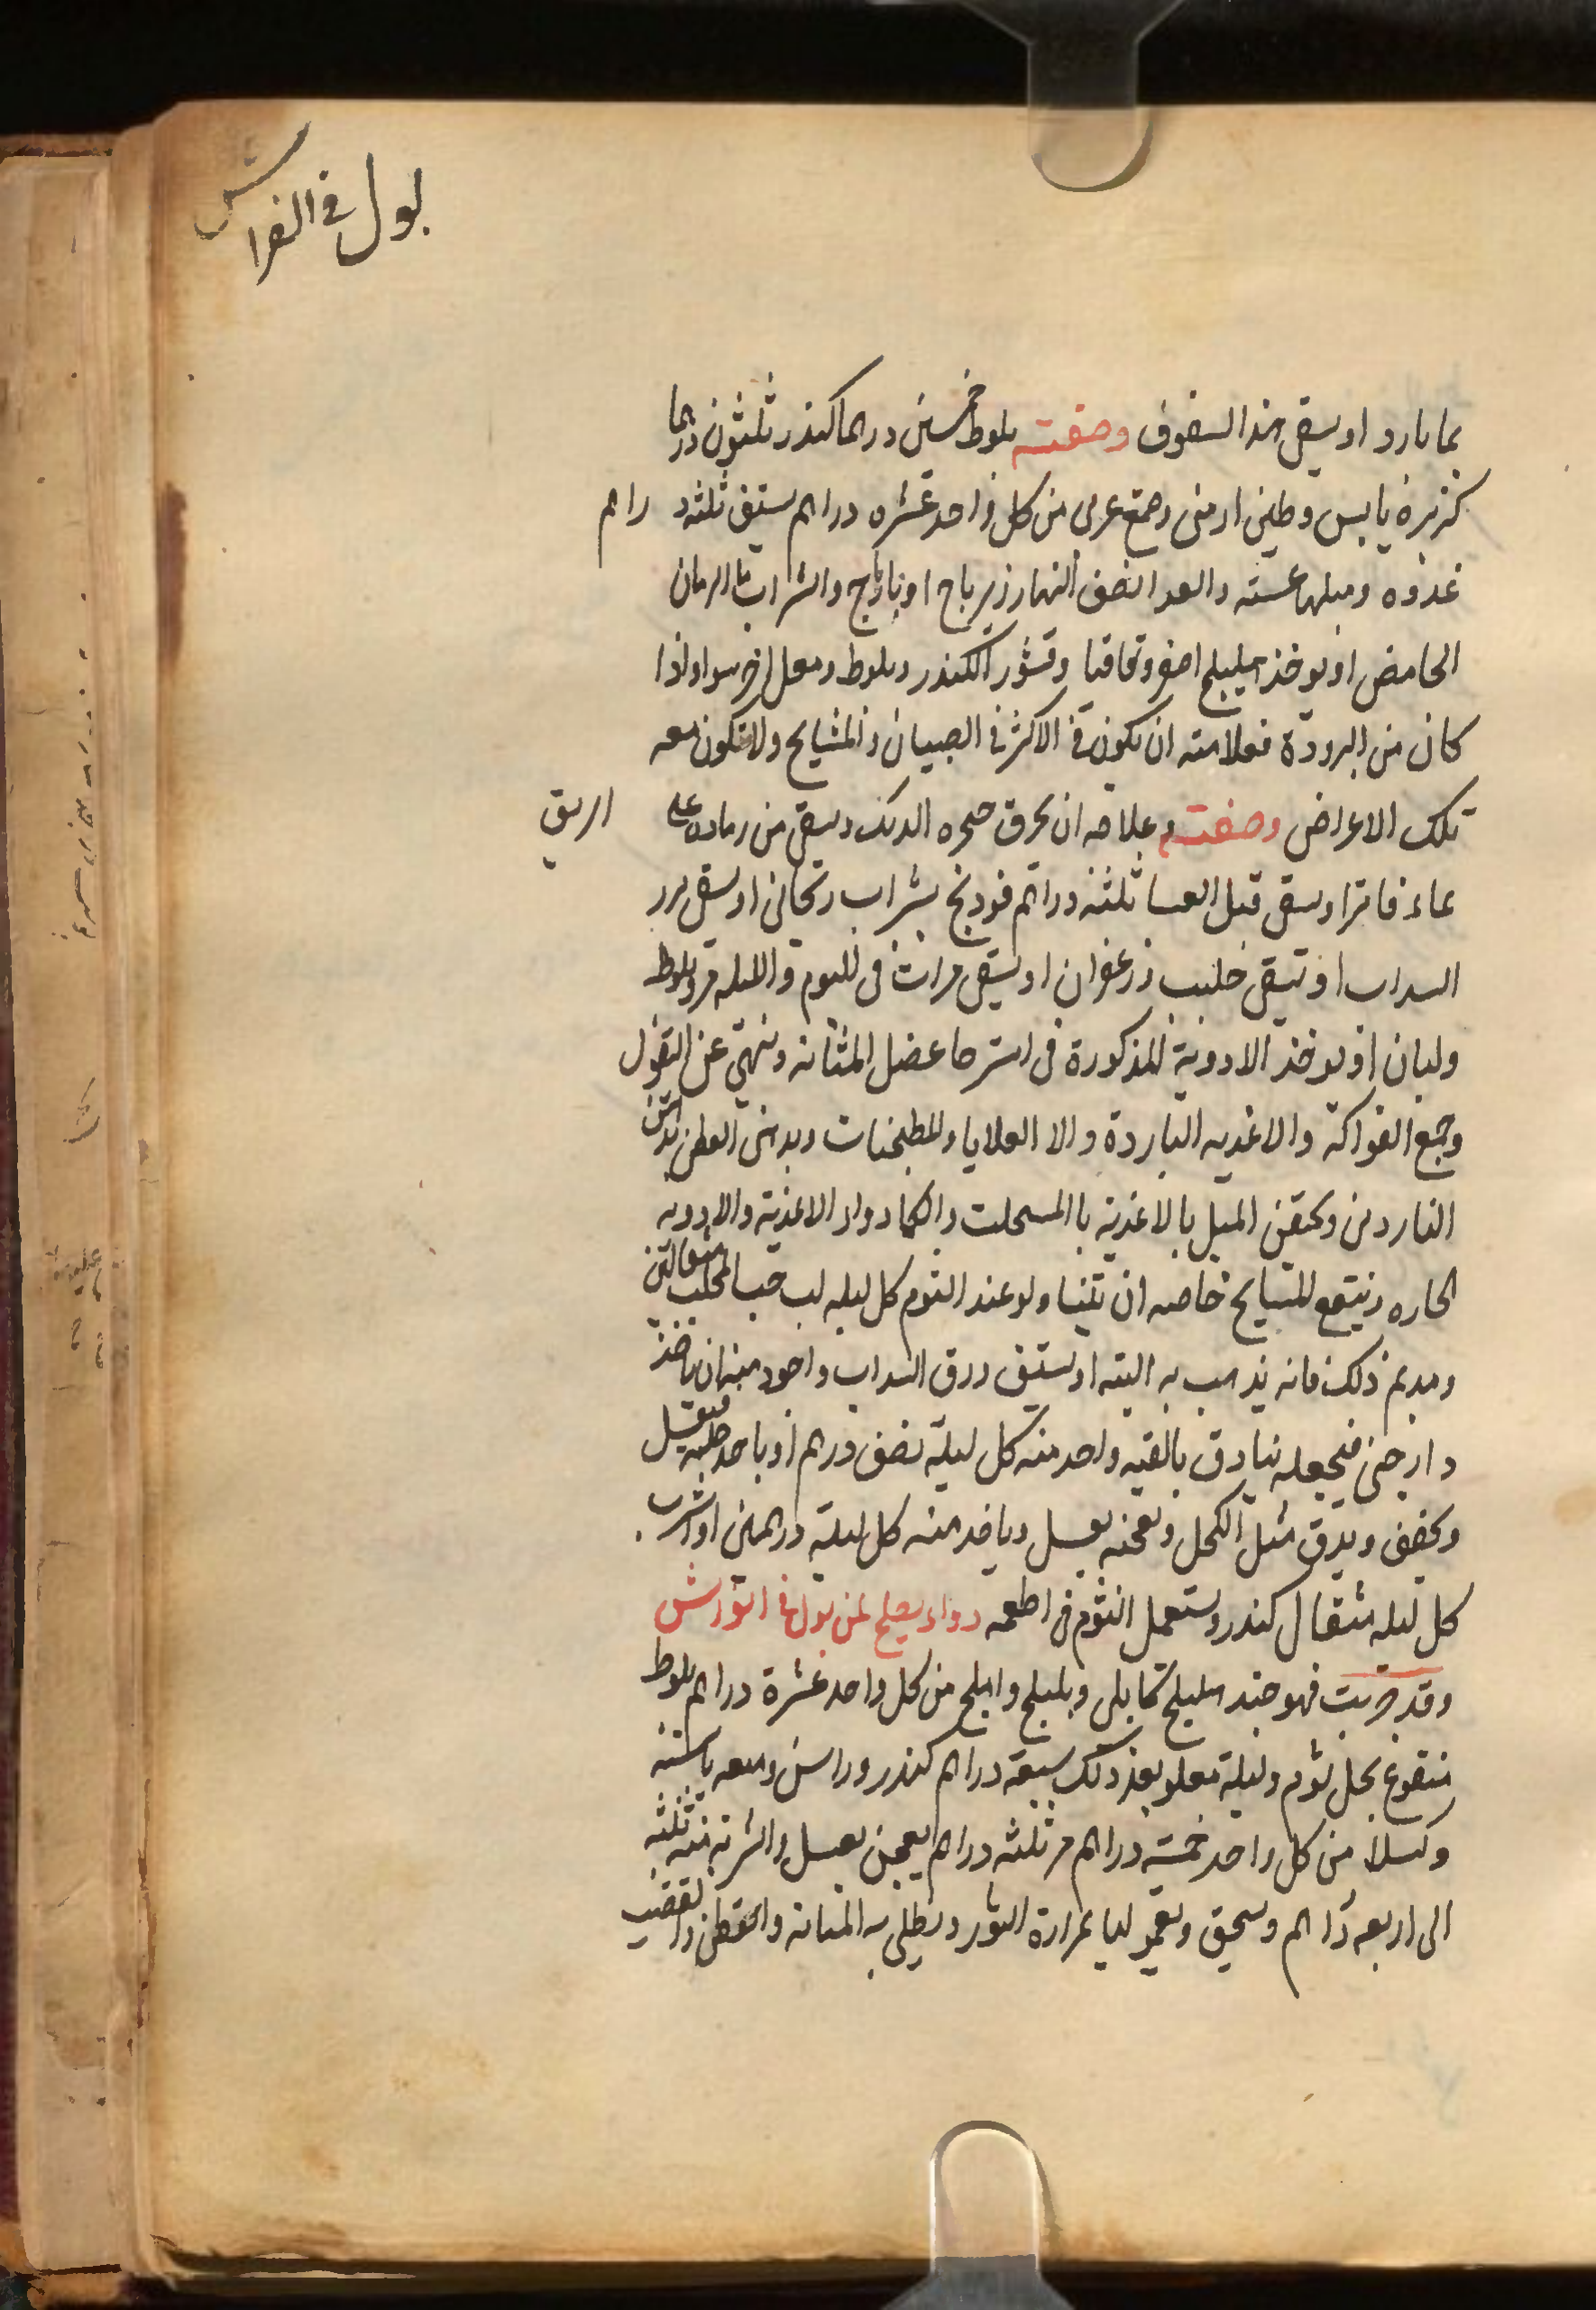 بول في الفراش
بما بارد او يسقى هذا السفوف وصفته بلوط خمسين درهما كندر ثلثون درهما
كزبرة يابس وطين ارمنى وصمغ عربى من كل واحد عشره دراهم يستف ثلثة دراهم
غدوه ومثلها عشيه والغدا نصف النهار زيرباج او نارباج والشراب ما الرمان
الحامض او يوخذ هليلج اصفر وقاقيا وقشور الكندر وبلوط اجزا سوا واذا
كان من البرودة فعلامته ان يكون في الاكثر في الصبيان والمشايخ ولا تكون معه
تلك الاعراض وصفت وعلاجه ان يحرق حنجره الديك ويسقى من رماده على الريق
بماء فاترا ويسقى قبل العشا ثلثة دراهم فودنج بشراب ريحانى او يسقى بزر
السداب او تسقى حليب وزعفران او يسقى مرات فى اليوم والليله مر وبلوط
ولبان او يوخذ الادوية المذكورة فى استرخا عضل المثانه وينهى عن البقول
وجميع الفواكه والاغديه الباردة والا القلايا والمطجنات ويدهن القطن بدهن
الناردين ويحقن الميل بالاغذية باالمسخلت والكما دواد الاغذية والادويه
الحاره وينتفع المشايخ خاصه ان يتناولو عند النوم كل ليله لب حب المحلب مثقالين
ومديم ذلك فانه يذهب به البته او يستف ورق السداب واجود منه ان ياخذ
دارصنى فيجعله بنادق واحد منه كل ليلة نصف درهم او ياخذ
ويجفف ويدق مثل الكحل ويعجنه بعسل وياخذ منه كل ليلة درهمين او اشرب
كل ليله مثقال كندر ويستعمل الثوم فى اطعمه دواء يصلح لمن بول فى الفراش
وقد جربت فهو جيد هليلج كابلى وبليلج واملج من كل واحد عشرة دراهم بلوط
منقوع بخل يوم وليلة بعد ذلك سبعة دراهم كندر وراسن وميعه يابسة
من كل واحد خمسة دراهم مر ثلثه دراهم يعجن بعسل والشربه منه ثلثه
الى اربعه دراهم ويسحق بمرارة الثور ويطلى به المثانه والقطن والقضيب